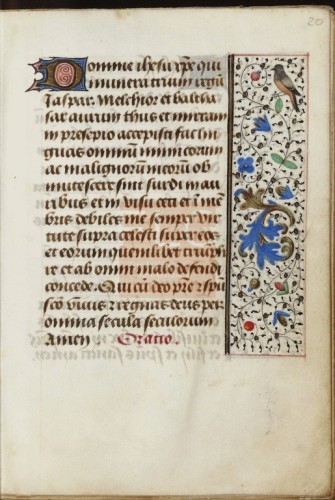 20
Domine ihesu xpe qui
munera trium regū
Jaspar. Melchior et baltha
sar aurum thus et mirram
in presepio accepisti fac lin
guas omniū inimicorum
ac malignorū meorū ob
mutescere sint surdi in au
ribus et in visu ceci et i mē
bris debiles me semper vir
tute supra celesti super eos
et eorum quemlibet triūpha
re et ab omni malo defendi
concede. Qui cū deo pre et spū
sco vivis et regnas deus per
omnia secula seculorum
Amen. Oratio.